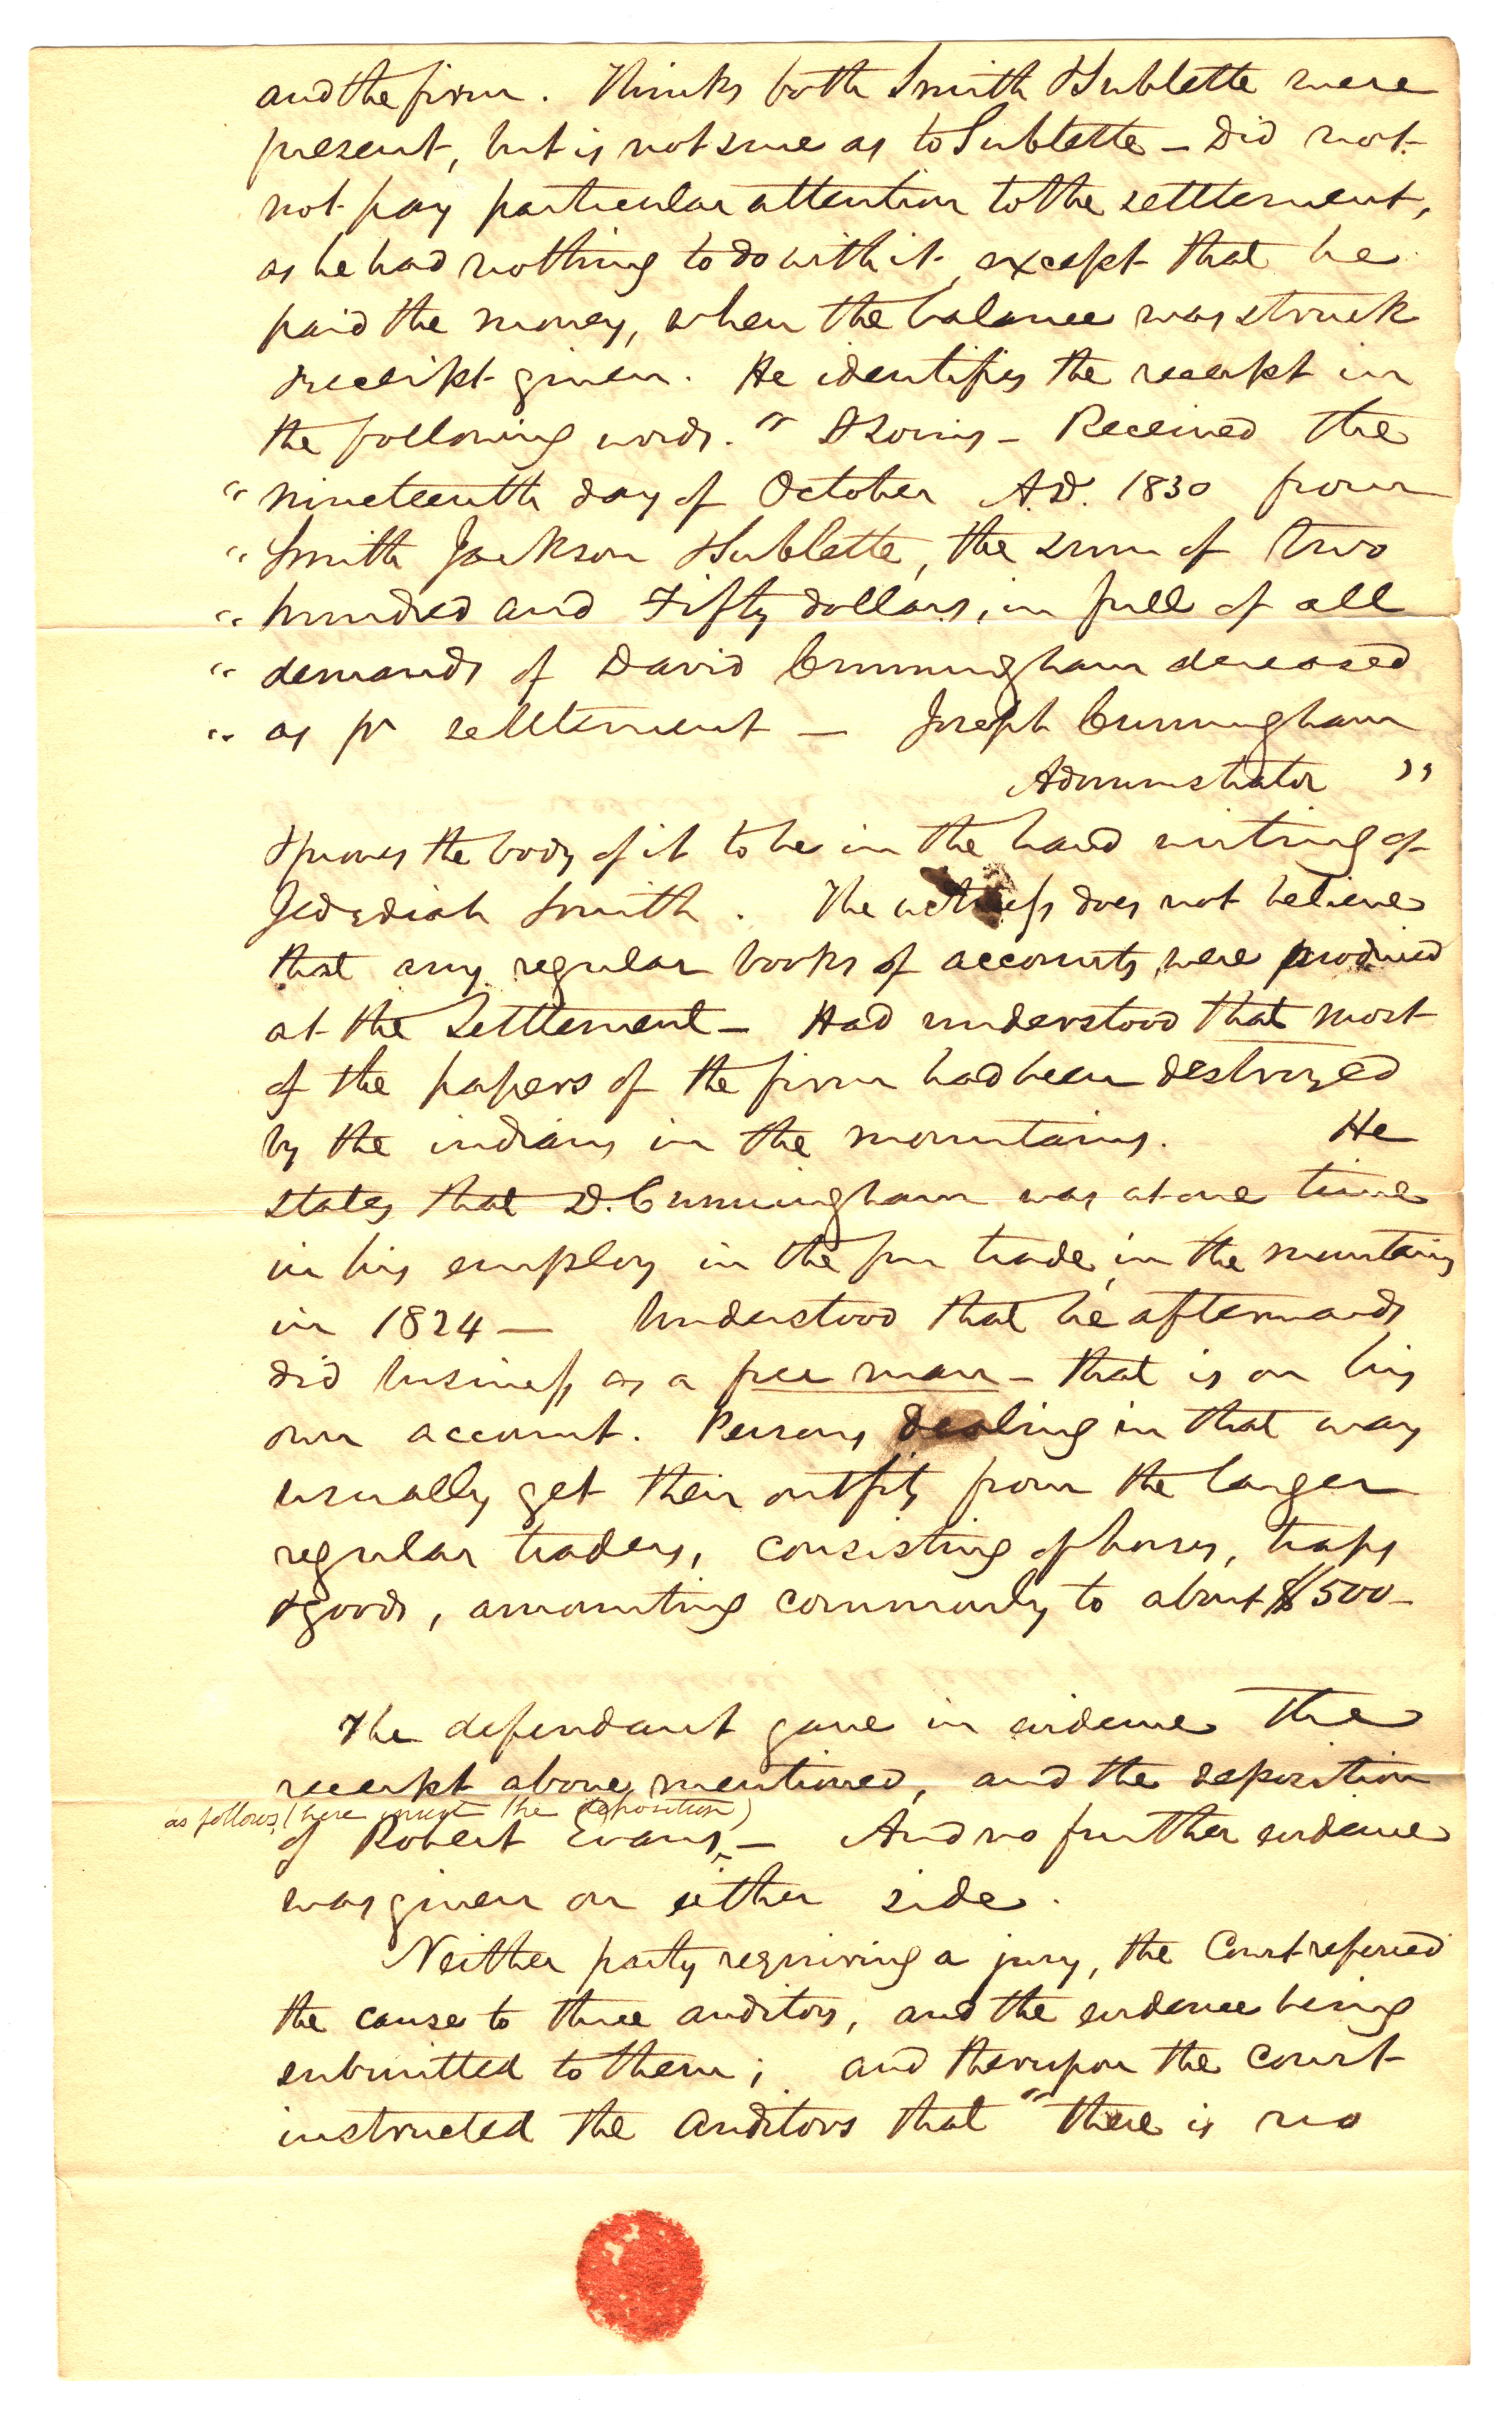 and the firm. Thinks both Smith & Sublette were
present, but is not sure as to Sublette – Did not
not pay particular attention to the settlement,
as he had nothing to do with it, except that he
paid the money, when the balance was struck
& receipt given. He identifies the receipt in
the following words. " St Louis – Received the
" nineteenth day of October A.D. 1830 from
" Smith Jackson & Sublette, the sum of two
" hundred and Fifty dollars, in full of all
" demands of David Cunningham deceased
" as pr settlement — Joseph Cunningham
Administrator "
& proves the body of it to be in the hand writing of
Jedediah Smith. The witness does not believe
that any regular books of accounts were produced
at the Settlement – Had understood that most
of the papers of the firm had been destroyed
by the indians in the mountains. He
states that D. Cunningham was at one time
in his employ in the fur trade, in the mountains
in 1824 — Understood that he afterwards
did business as a free man – that is on his
own account. Persons dealing in that way
usually get their outfits from the larger
regular traders, consisting of horses, traps
& goods, amounting commonly to about $500–
The defendant gave in evidence the
receipt above mentioned, and the deposition
as follows, (here insert the deposition)
of Robert Evans ^ – And no further evidence
was given on either side.
Neither party requiring a jury, the Court referred
the cause to three auditors, and the evidence being
submitted to them; and thereupon the Court
instructed the auditors that "there is no